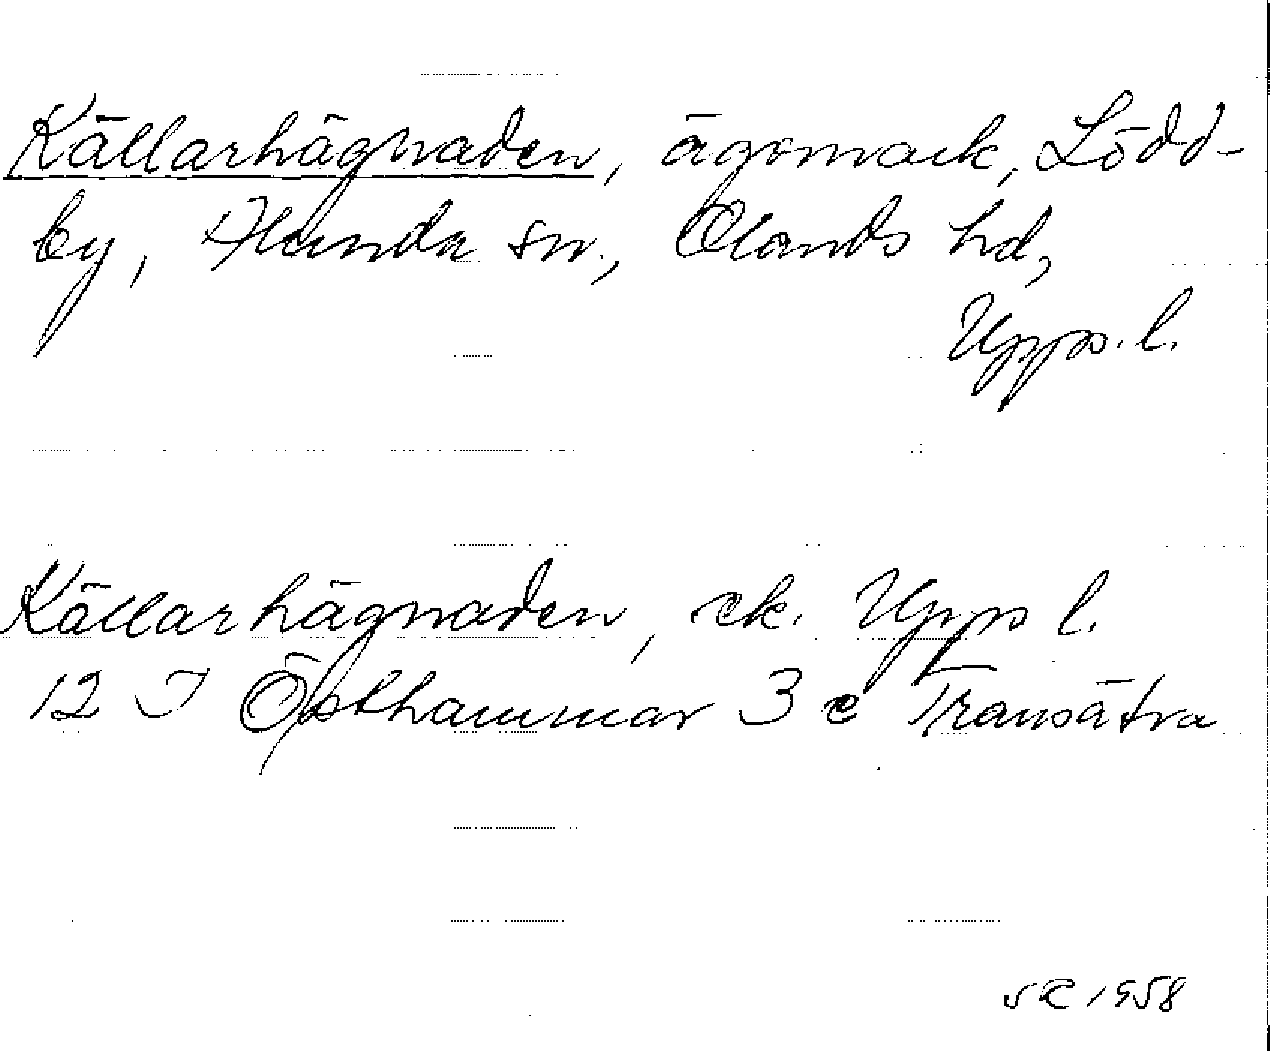 Källarhägnaden, ägomark, Lödd-
by, Alunda sn., Olands hd,
Upps. l.
Källarhägnaden, ek. Upps l.
12 I Östhammar 3 e Transätra
1958